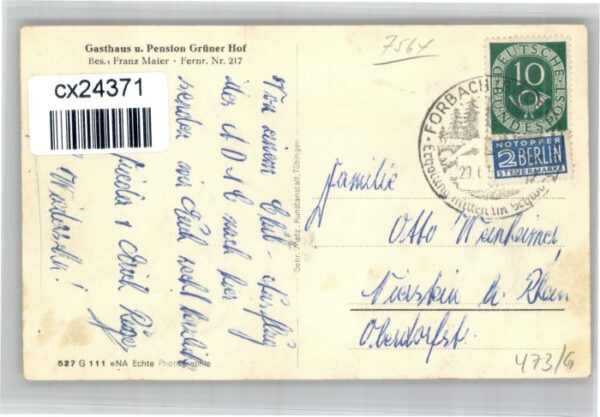 Gasthaus u. Pension Grüner Hof
Bes.: Franz Maier · Fernr. Nr. 217
cx24371
7564
Von einem Club-Ausflug
des A D A C nach hier
senden wir Euch recht herzliche
Wiedersehn!
527 G 111 eNA Echte Photographie
Gebr. Metz, Kunstanstalt, Tübingen
DEUTSCHE
10
BUNDESPOST
NOTOPFER
2 BERLIN
STEUERMARKE
FORBACH
Erholung mitten im Schw
29.
Familie
Otto Weinheimer
Nierstein a. Rhein
Oberdorfst.
473/G